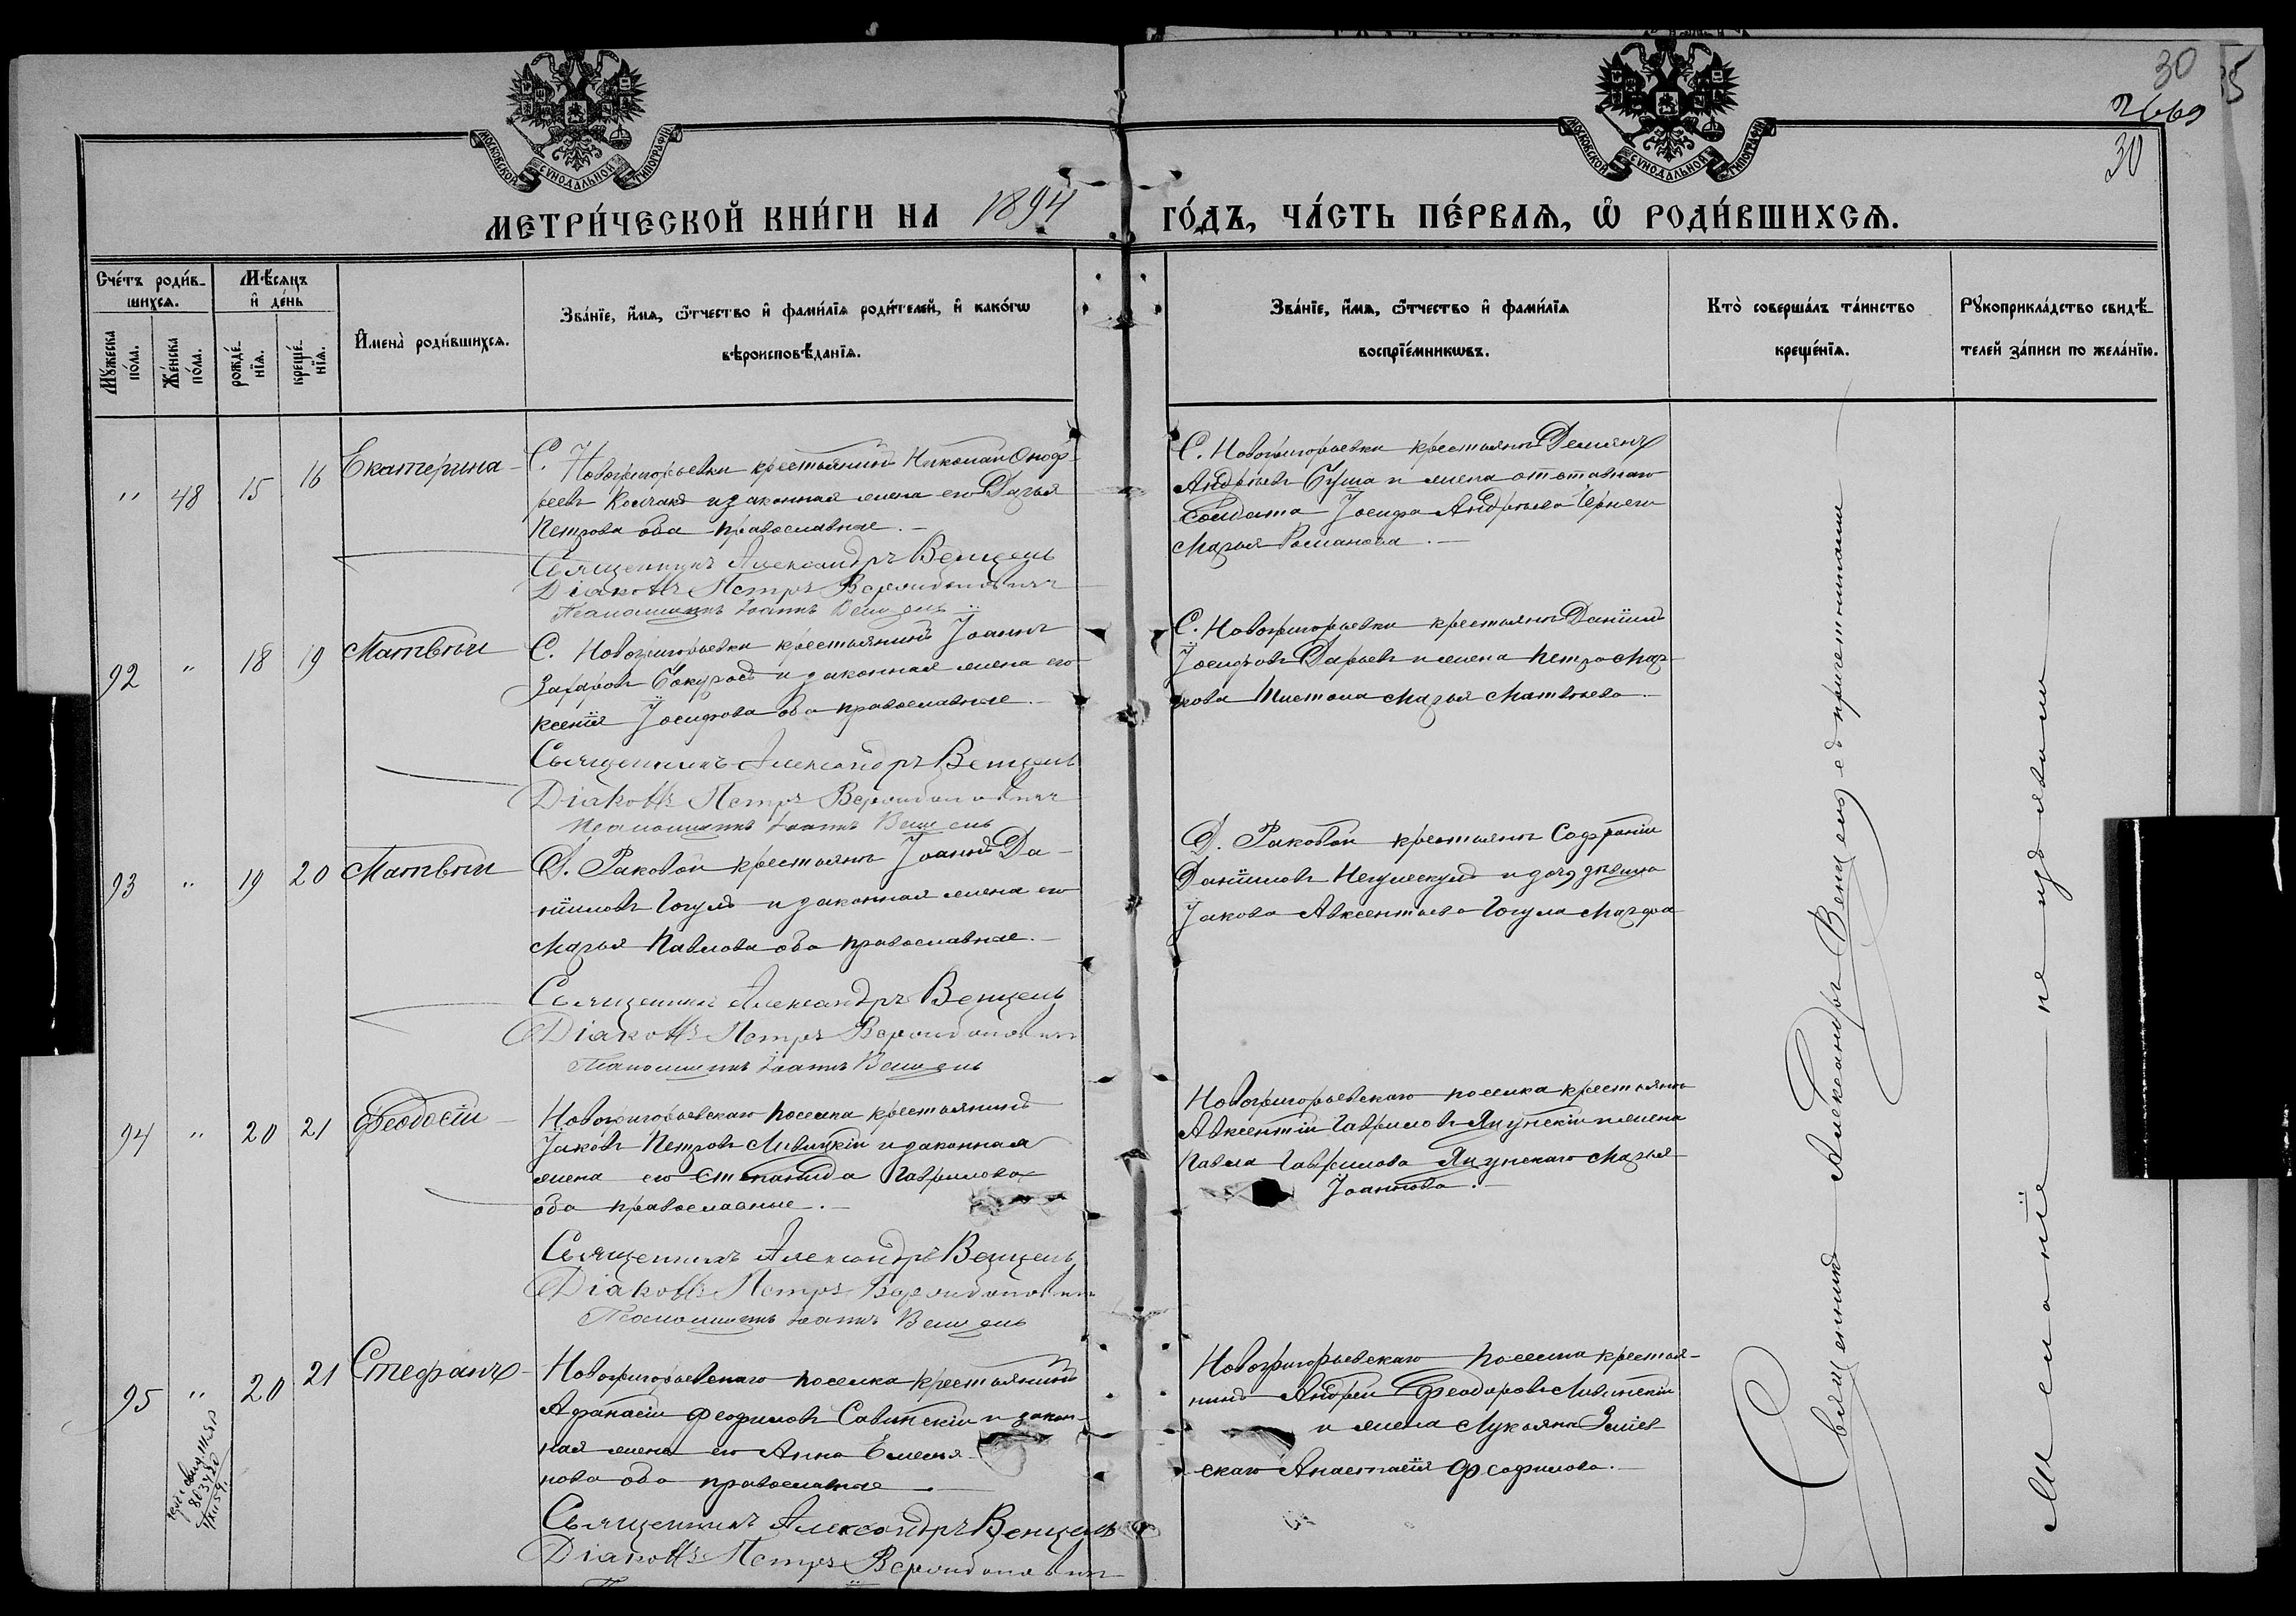 30
2669
30
МОСКОВСКОЙ СѴНОДАЛЬНОЙ ТИПОГРАФІИ
МОСКОВСКОЙ СѴНОДАЛЬНОЙ ТИПОГРАФІИ
МЕТРИ́ЧЕСКОЙ КНИ́ГИ НА 1894 ГО́ДЪ, ЧА́СТЬ ПЕ́РВАѦ, Ѽ РОДИ́ВШИХСѦ.
Сче́тъ роди́в-
шихсѧ.
Мꙋ́жеска
по́ла.
Же́нска
по́ла.
Мѣ́сѧцъ
и҆ де́нь
рожде́-
нїѧ.
креще́-
нїѧ.
И҆мена̀ роди́вшихсѧ.
Зва́нїе, и҆́мѧ, ѻ҆́тчество и҆ фами́лїѧ роди́телей, и҆ како́гѡ
вѣроисповѣ́данїѧ.
Зва́нїе, и҆́мѧ, ѻ҆́тчество и҆ фами́лїѧ
воспрїе́мникѡвъ.
Кто̀ соверша́лъ та́инство
креще́нїѧ.
Рꙋкоприкла́дство свидѣ́-
телей за́писи по жела́нїю.
" 48 15 16 Екатерина
С. Новогригорьевки крестьянинъ Николай Оноф-
реевъ Колчакъ и законная жена его Дарья
Петрова оба православные.
Священникъ Александръ Венцель
Діаконъ Петръ
Псаломщикъ Іоаннъ Венцель
С. Новогригорьевки крестьянинъ Демьянъ
Андреевъ Буша и жена отставнаго
Солдата Іосифа Андреева Чернеги
Марья Романова.
92 " 18 19 Матвѣй
С. Новогригорьевки крестьянинъ Іоаннъ
Захаровъ и законная жена его
Ксенія Іосифова оба православные.
Священникъ Александръ Венцель
Діаконъ Петръ
Псаломщикъ Іоаннъ Венцель
С. Новогригорьевки крестьянинъ Даніилъ
Іосифовъ Дарьевъ и жена Петра Мар-
кова Марья Матвѣева.
93 " 19 20 Матвѣй
Д. Раковой крестьянинъ Іоаннъ Да-
нііловъ Гогулъ и законная жена его
Марья Павлова оба православные.
Священникъ Александръ Венцель
Діаконъ Петръ
Псаломщикъ Іоаннъ Венцель
Д. Раковой крестьянинъ Софроній
Данііловъ Негулескулъ и дочь дѣвица
Іакова Авксентьева Гогула Марфа
94 " 20 21 Феодосій
Новогригорьевскаго поселка крестьянинъ
Іаковъ Петровъ Ливицкій и законная
жена его Степанида Гаврилова
оба православные.
Священникъ Александръ Венцель
Діаконъ Петръ
Псаломщикъ Іоаннъ Венцель
Новогригорьевскаго поселка крестьянинъ
Авксентій Гавриловъ Яцунскій и жена
Павла Гаврилова Яцунскаго Марья
Іоаннова.
95 " 20 21 Стефанъ
Новогригорьевскаго поселка крестьянинъ
Афанасій Феофиловъ Савинскій и закон-
ная жена его Анна Емелья-
нова оба православные
Священникъ Александръ Венцель
Діаконъ Петръ
Новогригорьевскаго поселка крестья-
нинъ Андрей Феодоровъ Ливинскій
и жена Лукьяна Зміев-
скаго Анастасія Феофилова.
Священникъ Александръ Венцель съ причетниками
Желаніе не изъявили